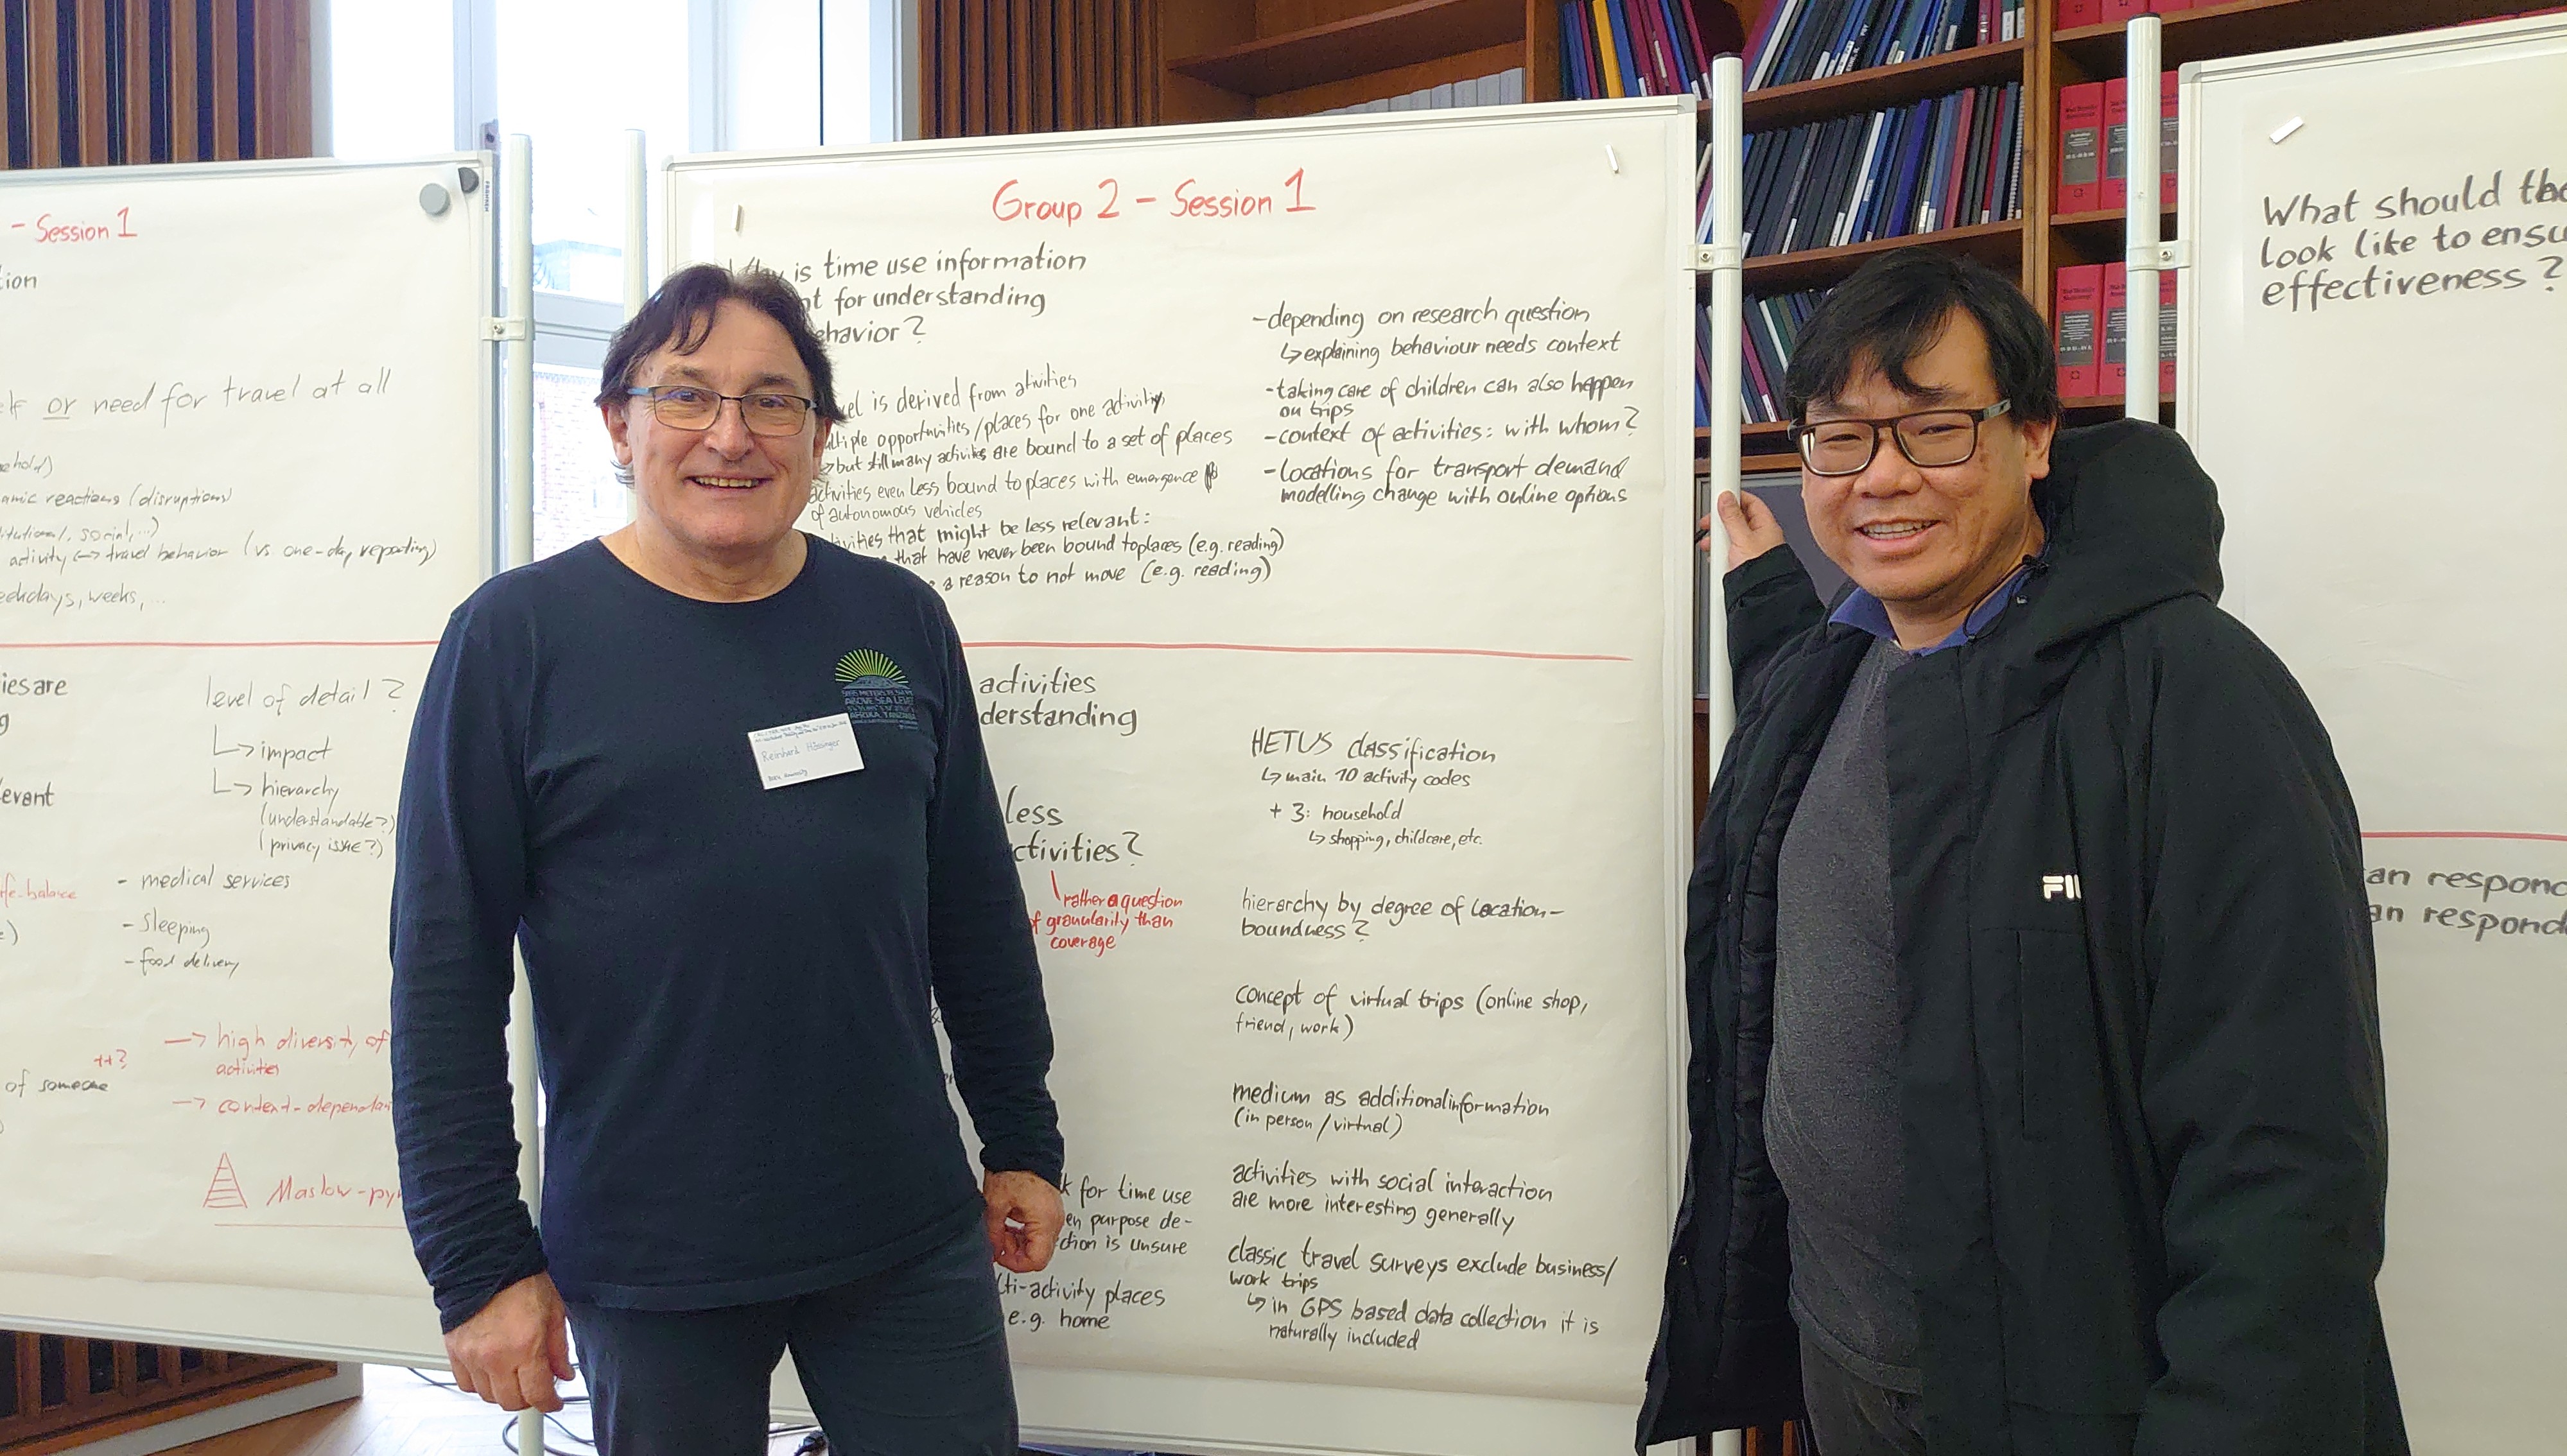 - Session 1
or need for travel at all
amic reactions (disruptions)
social, ...)
activity <-> travel behavior (vs one-day reporting)
weeks, ...
level of detail?
↳ impact
↳ hierarchy
(understandable?)
(privacy issue?)
- medical services
- sleeping
- food delivery
++?
→ high diversity of
activities
of someone
→ context-dependan
Maslow-py
Group 2 - Session 1
is time use information
for understanding
ehavior?
is derived from ativities
opportunities/places for one activity,
but still many activities are bound to a set of places
activities even less bound to places with emergence
of autonomous vehicles
that might be less relevant:
that have never been bound to places (e.g. reading)
a reason to not move (e.g. reading)
-depending on research question
↳ explaining behaviour needs context
-taking care of children can also happen
on trips
-context of activities: with whom?
-locations for transport demand
modelling change with online options
activities
derstanding
less
ctivities?
rather a question
of granularity than
coverage
for time use
en purpose de-
ction is unsure
lti-activity places
e.g. home
HETUS classification
↳ main 10 activity codes
+ 3: household
↳ shopping, childcare, etc.
hierarchy by degree of location-
boundness?
concept of virtual trips (online shop,
friend, work)
medium as additional information
(in person / virtual)
activities with social interaction
are more interesting generally
classic travel surveys exclude business/
work trips
↳ in GPS based data collection it is
naturally included
What should the
look like to ensu
effectiveness?
an respond
an respond
ABOVE SEA LEVEL
AFRIKA, TANZANIA
Reinhard Hössinger
FIL